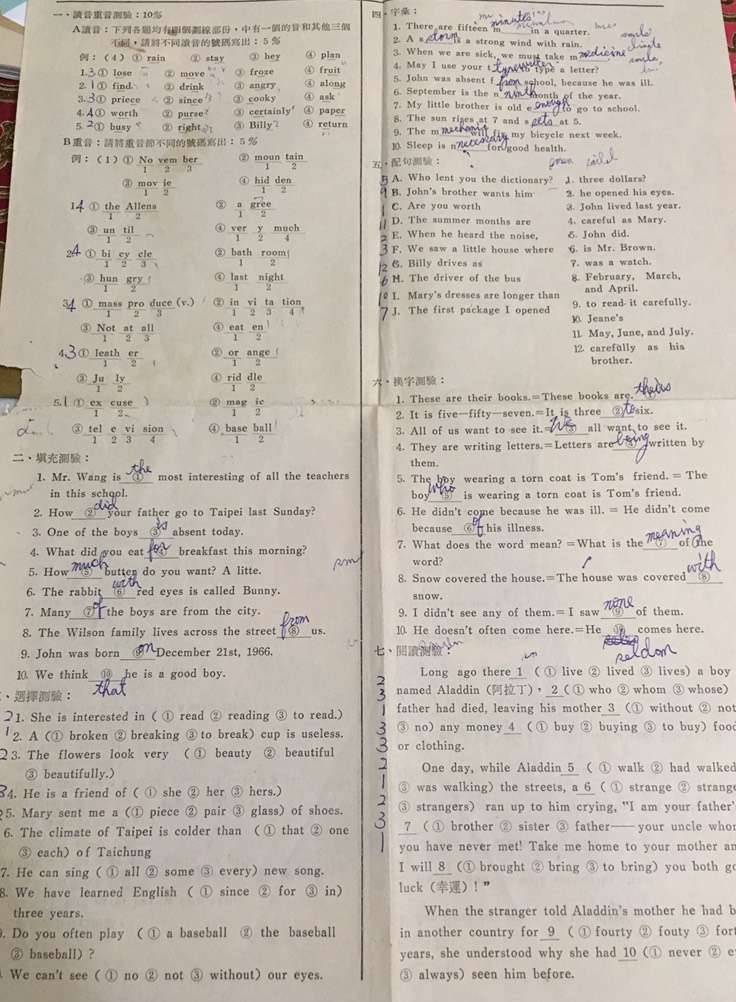 一、讀音重音測驗：10%
A讀音：下列各題均有四個劃線部份，中有一個的音和其他三個
不同，請將不同讀音的號碼寫出：5%
例：（4）① rain ② stay ③ hey ④ plan
1. 3 ① lose ② move ③ froze ④ fruit
2. 1 ① find ② drink ③ angry ④ along
3. 3 ① priece ② since ③ cooky ④ ask
4. 4 ① worth ② purse ③ certainly ④ paper
5. 2 ① busy ② right ③ Billy ④ return
B重音：請將重音節不同的號碼寫出：5%
例：（1）① No vem ber ② moun tain
1 2 3 1 2
③ mov ie ④ hid den
1 2 1 2
1 4 ① the Allens ② a gree
1 2 1 2
③ un til ④ ver y much
1 2 1 2
2 4 ① bi cy cle ② bath room
1 2 3 1 2
③ hun gry ④ last night
1 2 1 2
3 4 ① mass pro duce (v.) ② in vi ta tion
1 2 3 1 2 3 4
③ Not at all ④ eat en
1 2 3 1 2
4. 3 ① leath er ② or ange
1 2 1 2
③ Ju ly ④ rid dle
1 2 1 2
5. 1 ① ex cuse ② mag ic
1 2 1 2
③ tel e vi sion ④ base ball
1 2 3 4 1 2
二、填充測驗：
1. Mr. Wang is ① the most interesting of all the teachers
in this school.
2. How ② did your father go to Taipei last Sunday?
3. One of the boys ③ is absent today.
4. What did you eat ④ for breakfast this morning?
5. How ⑤ much butter do you want? A litte.
6. The rabbit ⑥ with red eyes is called Bunny.
7. Many ⑦ of the boys are from the city.
8. The Wilson family lives across the street ⑧ from us.
9. John was born ⑨ on December 21st, 1966.
10. We think ⑩ that he is a good boy.
、選擇測驗：
2 1. She is interested in ( ① read ② reading ③ to read.)
1 2. A (① broken ② breaking ③ to break) cup is useless.
2 3. The flowers look very ( ① beauty ② beautiful
③ beautifully.)
3 4. He is a friend of ( ① she ② her ③ hers.)
2 5. Mary sent me a (① piece ② pair ③ glass) of shoes.
6. The climate of Taipei is colder than ( ① that ② one
③ each) of Taichung
7. He can sing ( ① all ② some ③ every) new song.
8. We have learned English ( ① since ② for ③ in)
three years.
. Do you often play ( ① a baseball ② the baseball
③ baseball) ?
We can't see ( ① no ② not ③ without) our eyes.
四、字彙：
1. There are fifteen m minutes in a quarter.
2. A s storm is a strong wind with rain.
3. When we are sick, we must take m medicine
4. May I use your t typewriter to type a letter?
5. John was absent f from school, because he was ill.
6. September is the n ninth month of the year.
7. My little brother is old e enough to go to school.
8. The sun rises at 7 and s sets at 5.
9. The m mechanic will fix my bicycle next week.
10. Sleep is n necessary for good health.
五、配句測驗：
5 A. Who lent you the dictionary? 1. three dollars?
9 B. John's brother wants him 2. he opened his eyes.
1 C. Are you worth 3. John lived last year.
11 D. The summer months are 4. careful as Mary.
2 E. When he heard the noise, 5. John did.
3 F. We saw a little house where 6. is Mr. Brown.
12 G. Billy drives as 7. was a watch.
6 H. The driver of the bus 8. February, March,
and April.
10 I. Mary's dresses are longer than 9. to read it carefully.
7 J. The first package I opened 10. Jeane's
11. May, June, and July.
12. carefully as his
brother.
六、換字測驗：
1. These are their books.=These books are. theirs
2. It is five—fifty—seven.=It is three ② to six.
3. All of us want to see it. We all want to see it.
4. They are writing letters.=Letters are being written by
them.
5. The boy wearing a torn coat is Tom's friend. = The
boy ⑤ who is wearing a torn coat is Tom's friend.
6. He didn't come because he was ill. = He didn't come
because ⑥ of his illness.
7. What does the word mean? =What is the ⑦ meaning of the
word?
8. Snow covered the house.=The house was covered ⑧ with
snow.
9. I didn't see any of them.= I saw ⑨ none of them.
10. He doesn't often come here.=He ⑩ seldom comes here.
七、閱讀測驗：
2 Long ago there 1 ( ① live ② lived ③ lives) a boy
3 named Aladdin (阿拉丁)， 2 (① who ② whom ③ whose)
1 father had died, leaving his mother 3 (① without ② not
3 ③ no) any money 4 ( ① buy ② buying ③ to buy) food
3 or clothing.
2 One day, while Aladdin 5 ( ① walk ② had walked
1 ③ was walking) the streets, a 6 ( ① strange ② strange
2 ③ strangers) ran up to him crying, "I am your father'
3 7 ( ① brother ② sister ③ father—— your uncle whom
1 you have never met! Take me home to your mother an
I will 8 (① brought ② bring ③ to bring) you both g
luck (幸運) ! "
When the stranger told Aladdin's mother he had b
in another country for 9 ( ① fourty ② fouty ③ fort
years, she understood why she had 10 (① never ② e
③ always) seen him before.